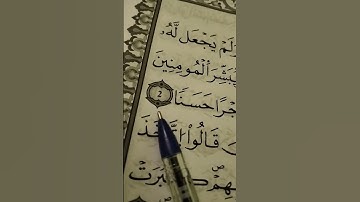 وَلَمْ يَجْعَل لَّهُۥ
يُبَشِّرَ اَ۬لْمُومِنِينَ
جْراً حَسَناً 2
قَالُواْ اُ۪تَّخَذَ
هِمْ كَبُرَتْ